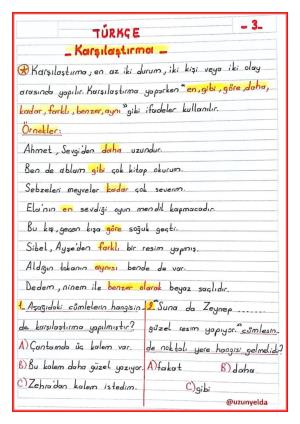 - 3 -
TÜRKÇE
- Karşılaştırma -
Karşılaştırma, en az iki durum, iki kişi veya iki olay
arasında yapılır. Karşılaştırma yaparken "en, gibi, göre, daha,
kadar, farklı, benzer, aynı" gibi ifadeler kullanılır.
Örnekler:
Ahmet, Sevgi'den daha uzundur.
Ben de ablam gibi çok kitap okurum.
Sebzeleri meyveler kadar çok severim.
Ela'nın en sevdiği oyun mendil kapmacadır.
Bu kış, geçen kışa göre soğuk geçti.
Sibel, Ayşe'den farklı bir resim yapmış.
Aldığın tokanın aynısı bende de var.
Dedem, ninem ile benzer olarak beyaz saçlıdır.
1. Aşağıdaki cümlelerin hangisin
de karşılaştırma yapılmıştır?
A) Çantamda üç kalem var.
B) Bu kalem daha güzel yazıyor.
C) Zehra'dan kalem istedim.
2. "Suna da Zeynep ......
güzel resim yapıyor." cümlesin
de noktalı yere hangisi gelmelidir?
A) fakat B) daha
C) gibi
@uzunyelda